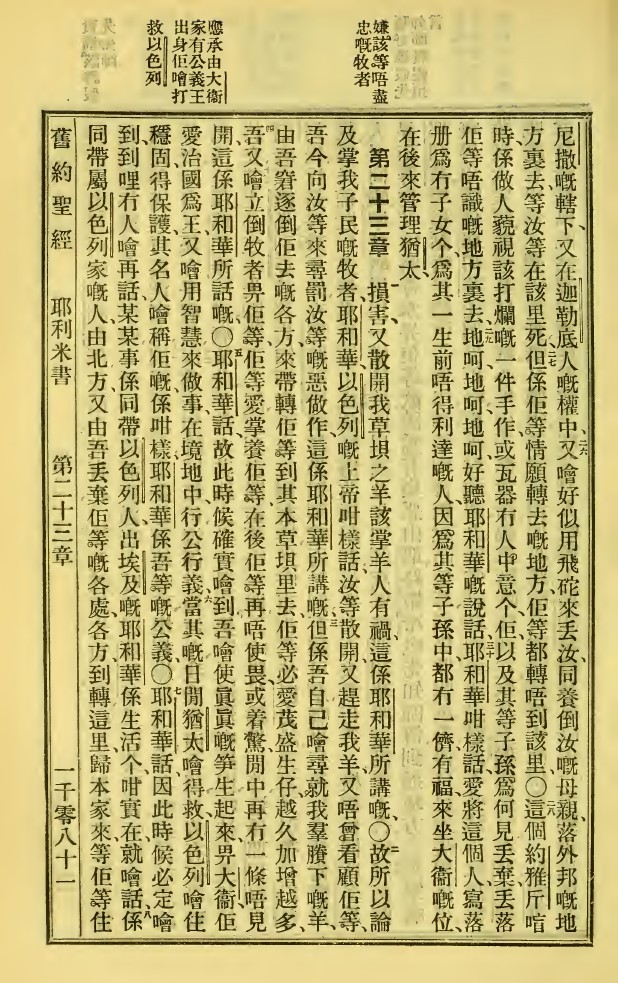 嫌該等唔盡
忠嘅牧者
應承由大衛
家有公義王
出身佢噲打
救以色列
尼撒嘅轄下、又在迦勒底人嘅權中、又噲好似用飛砣來丢汝、同養倒汝嘅母親、落外邦嘅地
方裏去、等汝等在該里死、但係佢等情願轉去嘅地方、佢等都轉唔到該里〇這個約雅斤、㗒
時係做人藐視、該打爛嘅一件手作、或瓦器冇人中意个、佢以及其等子孫、爲何見丢棄、丢落
佢等唔識嘅地方裏去、地呵、地呵、地呵、好聽耶和華嘅說話、耶和華咁樣話、愛將這個人寫落
册爲冇子女个、爲其一生前唔得利達嘅人、因爲其等子孫中、都冇一儕有福、來坐大衛嘅位、
在後來管理猶太、
第二十三章 損害又散開我草垻之羊、該掌羊人有禍、這係耶和華所講嘅〇故所以論
及掌我子民嘅牧者、耶和華以色列嘅上帝咁樣話、汝等散開又趕走我羊、又唔曾看顧佢等、
吾今向汝等來尋罰汝等嘅惡做作、這係耶和華所講嘅、但係吾自己噲尋就我羣賸下嘅羊、
由吾窘逐倒佢去嘅各方、來帶轉佢等、到其本草垻里去、佢等必愛茂盛生仔、越久加增越多、
吾又噲立倒牧者畀佢等、佢等愛掌養佢等、在後佢等再唔使畏或着驚、閒中再冇一條唔見
開、這係耶和華所話嘅、〇耶和華話、故此時候確實噲到、吾噲使眞眞嘅笋生起來、畀大衛、佢
愛治國爲王、又噲用智慧來做事、在境地中、行公行義、當其嘅日閒、猶太噲得救、以色列噲住
穩固得保護、其名人噲稱佢嘅、係咁樣、耶和華係吾等嘅公義〇耶和華話、因此時候必定噲
到、到哩冇人噲再話、某某事、係同帶以色列人出埃及嘅耶和華係生活个、咁實在、就噲話、係
同帶屬以色列家嘅人、由北方、又由吾丢棄佢等嘅各處各方、到轉這里歸本家、來等佢等住
舊約聖經 耶利米書 第二十三章 一千零八十一